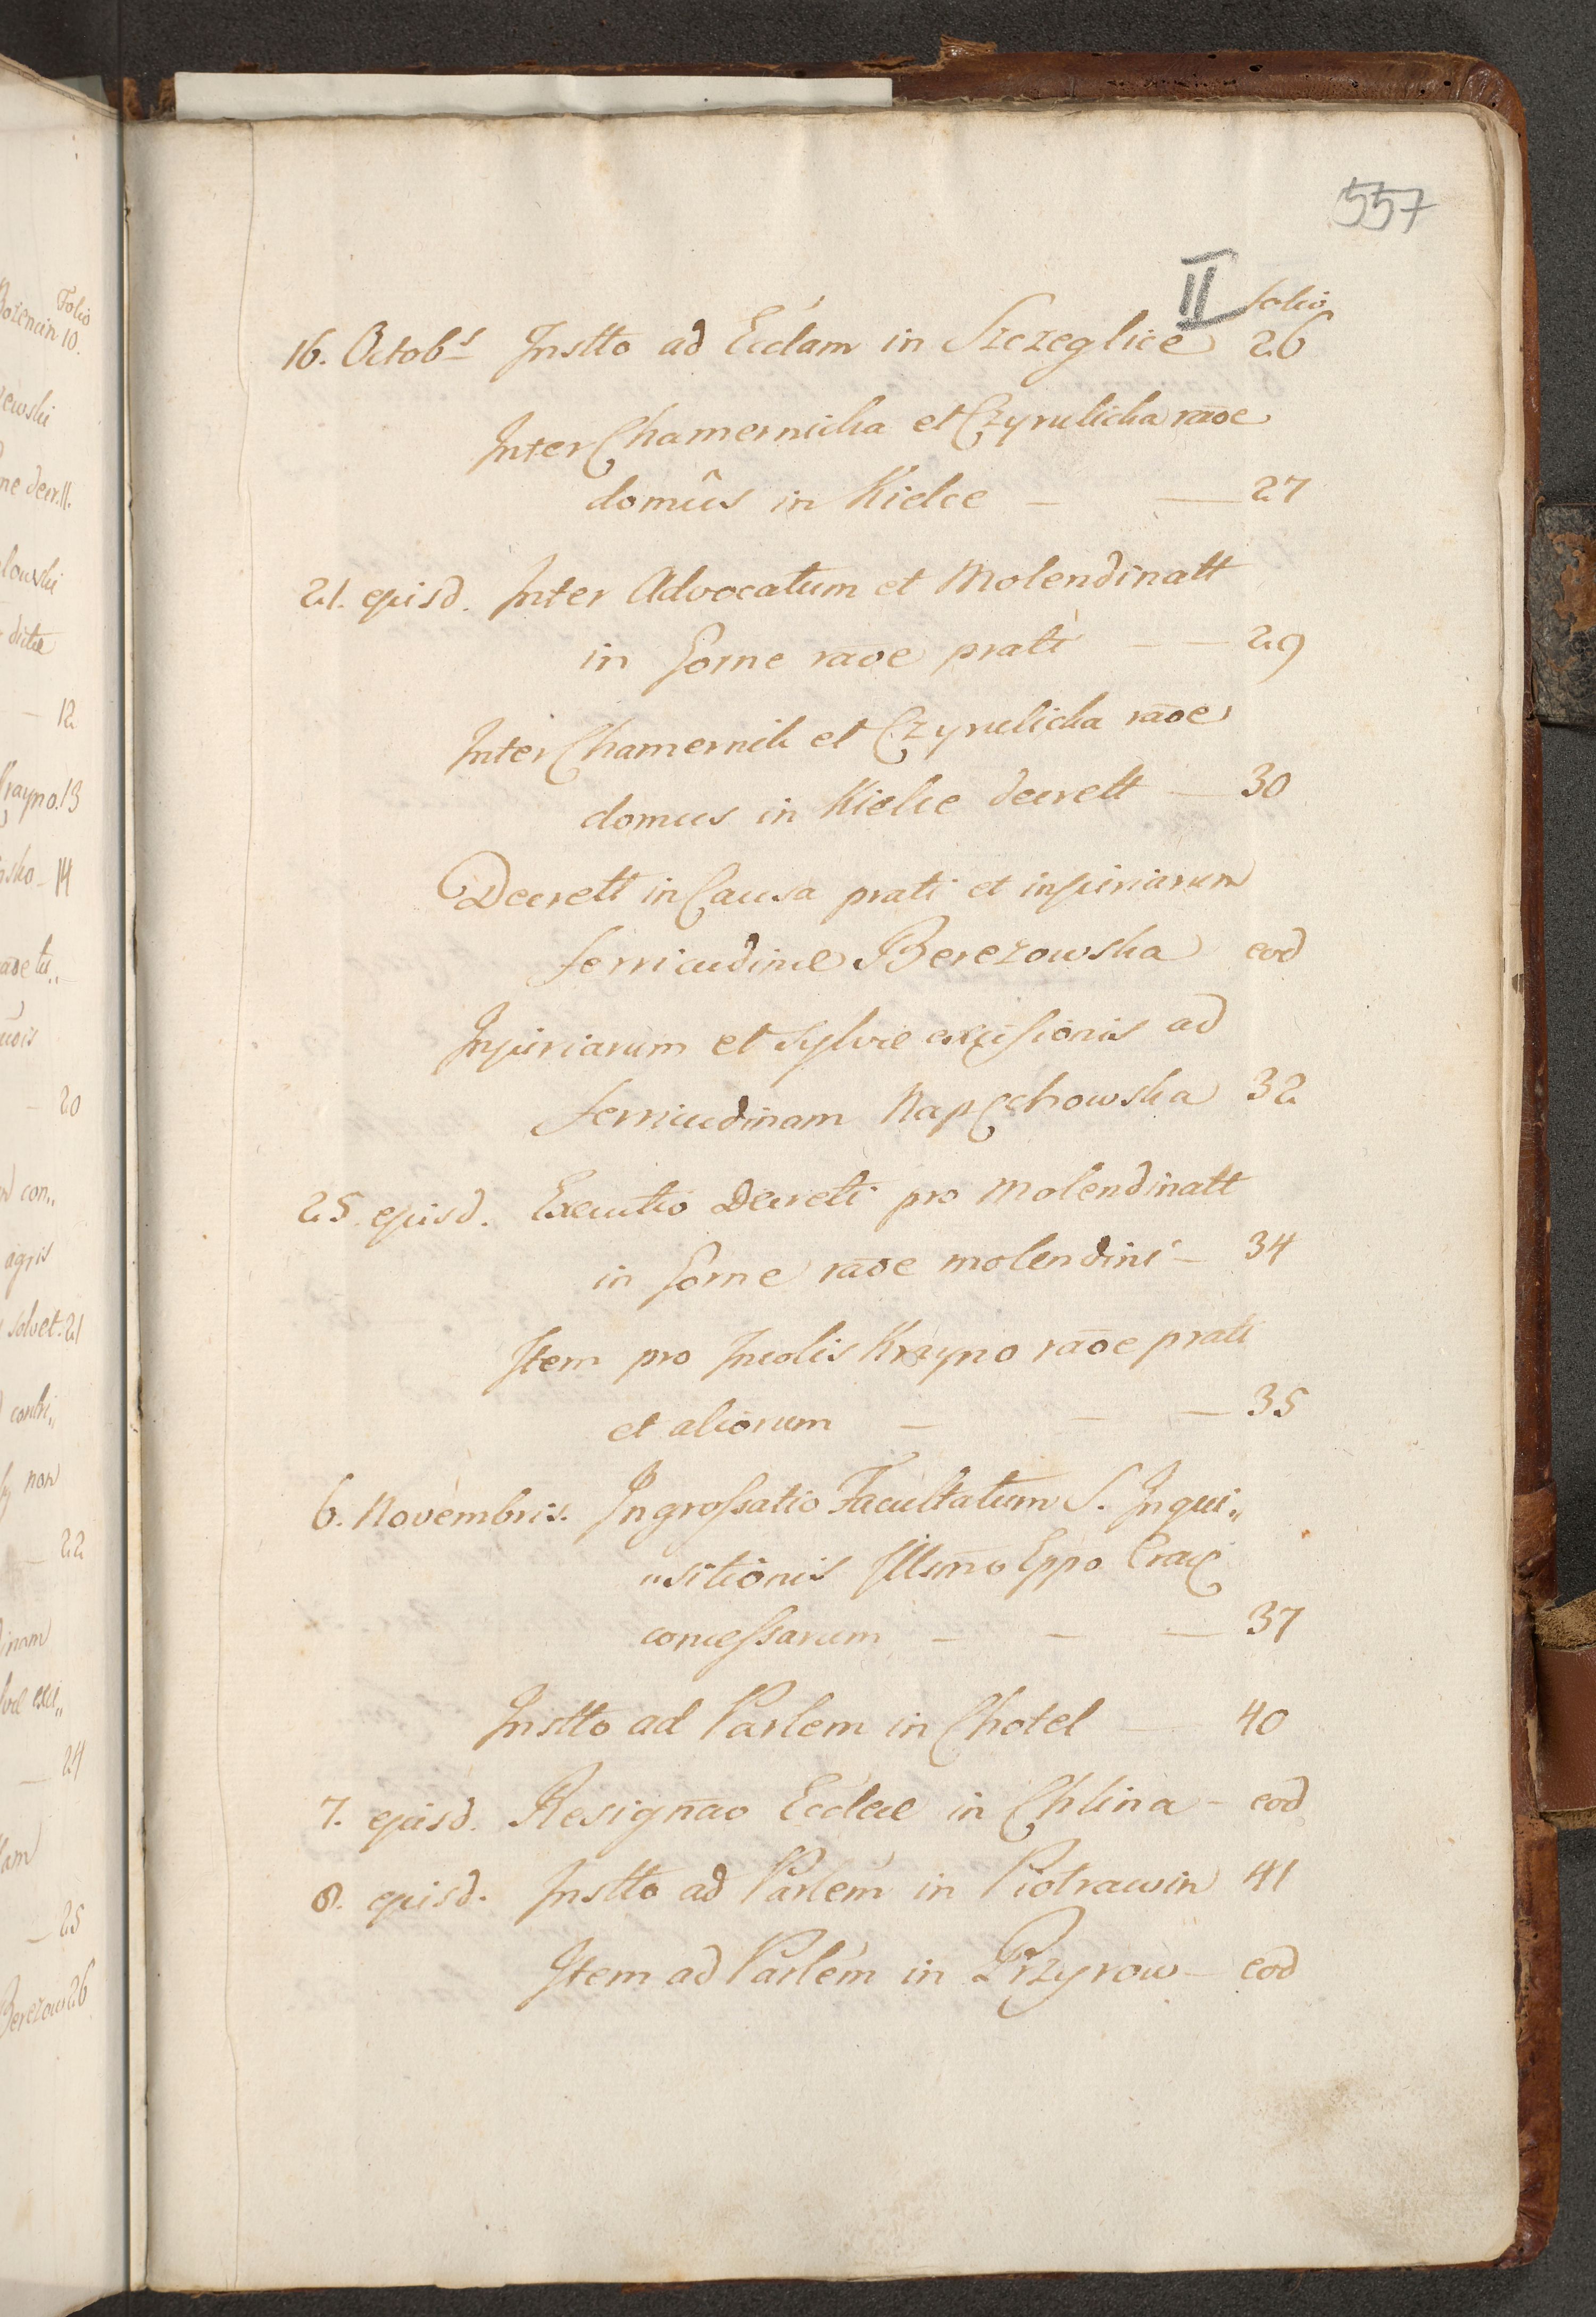 557
II folio
16. Octobs Instto ad Ecclam in Szczeglice 26
Inter Chamernicka et Czyrulicka raoe
domûs in Kielce — — 27
21. ejusd. Inter Advocatum et Molendinatt
in Gorne raōe prati — — 29
Inter Chamernik et Czyrulicka raōe
domus in Kielce decrett — 30
Decrett in Causa prati et injuriarum
ferricudinæ Berezowska eod
Injuriarum et Sylvæ excisionis ad
ferricudinam Napęchowska 32
25. ejusd. Executio Decreti pro Molendinatt
in Gorne raōe molendini — 34
Item pro Incolis Krayno raōe prati
et aliorum — — — 35
6. Novembris. Ingrossatio Facultatum S. Inqui„
„sitionis Illsmō Eppo Crac
concessarum — — — 37
Instto ad Parlem in Chotel — 40
7. ejusd. Resignāo Ecclæ in Chlina — eod
8. ejusd. Instto ad Parlem in Piotrawin 41
Item ad Parlem in Przyrow — eod
Folio
10.
decr. 11.
12
Krayno. 13
14
20
con„
agris
solvet. 21
contri„
non
22
24
25
Berezow 26